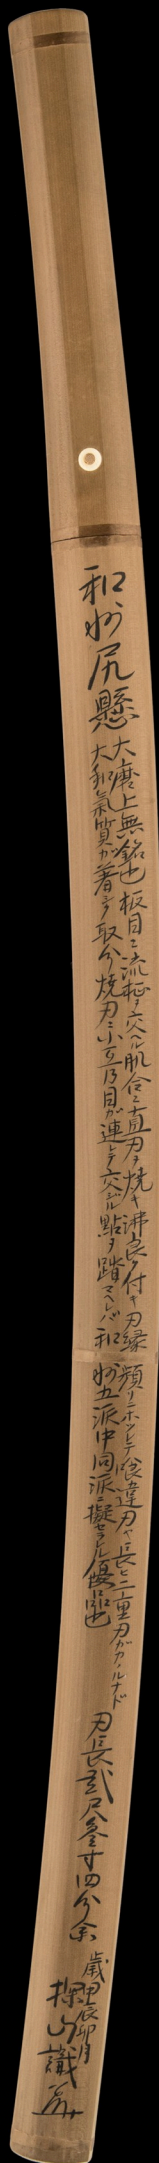 和州尻懸
大磨上無銘也 板目ニ流柾ヲ交ヘル肌合ニ直刃ヲ焼キ沸良ク付キ刃縁頻リニホツレテ喰違刃ヤ長ヒ二重刃ガカヽルナド
大和氣質ガ著シク取分焼刃ニ小互乃目ガ連レテ交ジル點ヲ踏マヘレバ和州五派中同派ニ擬セラレル優品也
刃長貳尺參寸四分余
歳甲辰卯月
探山識